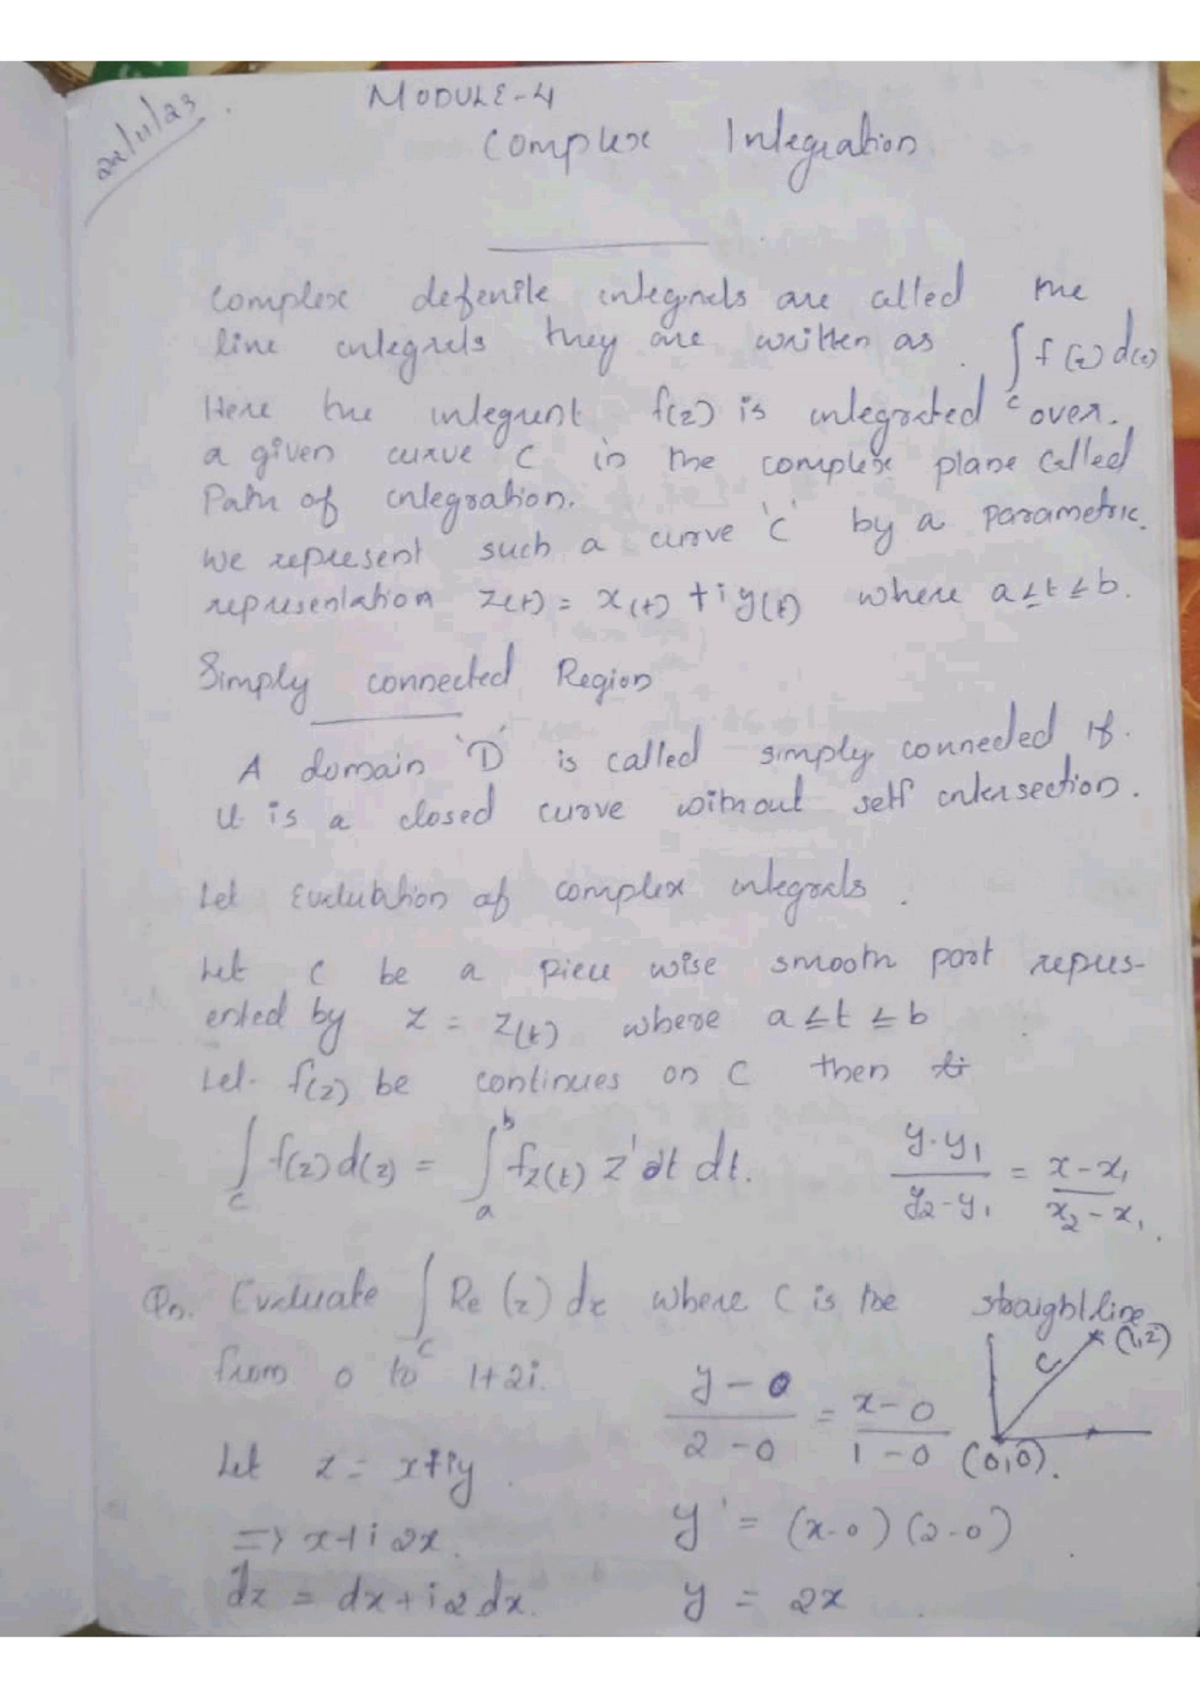 22/11/23
MODULE-4
Complex Integration
Complex defenite integrals are called the
line integrals they are written as ∫ f(z)d(z)
c
Here the integrent f(z) is integrated over
a given curve C in the complex plane called
Path of integration.
We represent such a curve 'C' by a parametric
representation z(t) = x(t) + iy(t) where a≤t≤b.
Simply connected Region
A domain 'D' is called simply connected if
it is a closed curve without self intersection.
Let Evaluation of complex integrals.
Let C be a piece wise smooth part repres-
ented by z = z(t) where a≤t≤b
Let f(z) be continues on C then
∫c f(z)d(z) = ∫ₐᵇ f z(t) z' dt dt. y-y₁/y₂-y₁ = x-x₁/x₂-x₁
Qn. Evaluate ∫c Re(z) dz where C is the straight line
from 0 to 1+2i. y-0/2-0 = x-0/1-0
C (1,2)
(0,0).
Let z = x+iy. y = (x-0)(2-0)
=> x+i2x. y = 2x
dz = dx+i2dx.